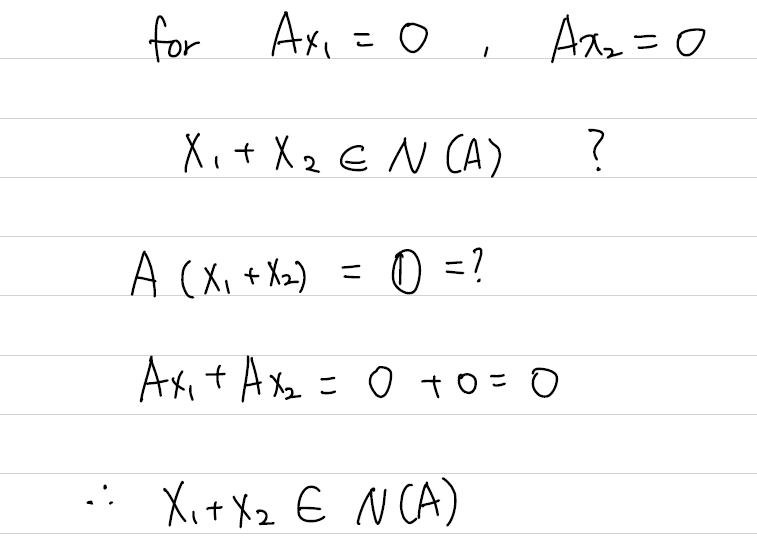 for Ax₁ = 0 , Ax₂ = 0
x₁ + x₂ ∈ N(A) ?
A (x₁ + x₂) = 0 = ?
Ax₁ + Ax₂ = 0 + 0 = 0
∴ x₁ + x₂ ∈ N(A)